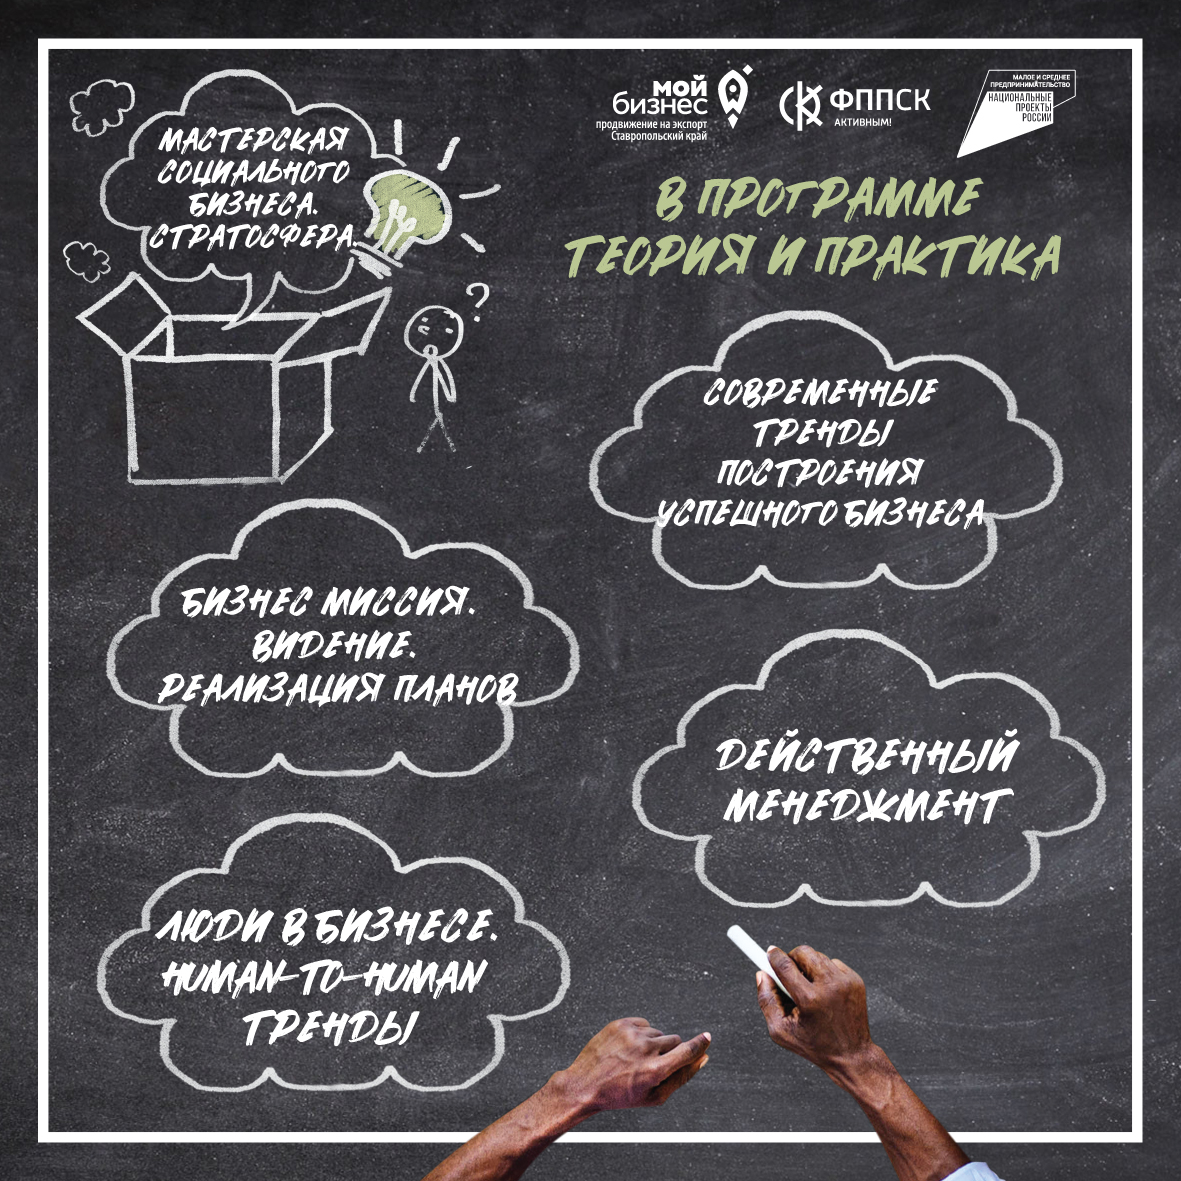 МАСТЕРСКАЯ
СОЦИАЛЬНОГО
БИЗНЕСА.
СТРАТОСФЕРА.
?
мой
бизнес
продвижение на экспорт
Ставропольский край
ФППСК
АКТИВНЫМ!
МАЛОЕ И СРЕДНЕЕ
ПРЕДПРИНИМАТЕЛЬСТВО
НАЦИОНАЛЬНЫЕ
ПРОЕКТЫ
РОССИИ
В ПРОГРАММЕ
ТЕОРИЯ И ПРАКТИКА
СОВРЕМЕННЫЕ
ТРЕНДЫ
ПОСТРОЕНИЯ
УСПЕШНОГО БИЗНЕСА
БИЗНЕС МИССИЯ.
ВИДЕНИЕ.
РЕАЛИЗАЦИЯ ПЛАНОВ
ДЕЙСТВЕННЫЙ
МЕНЕДЖМЕНТ
ЛЮДИ В БИЗНЕСЕ.
HUMAN-TO-HUMAN
ТРЕНДЫ